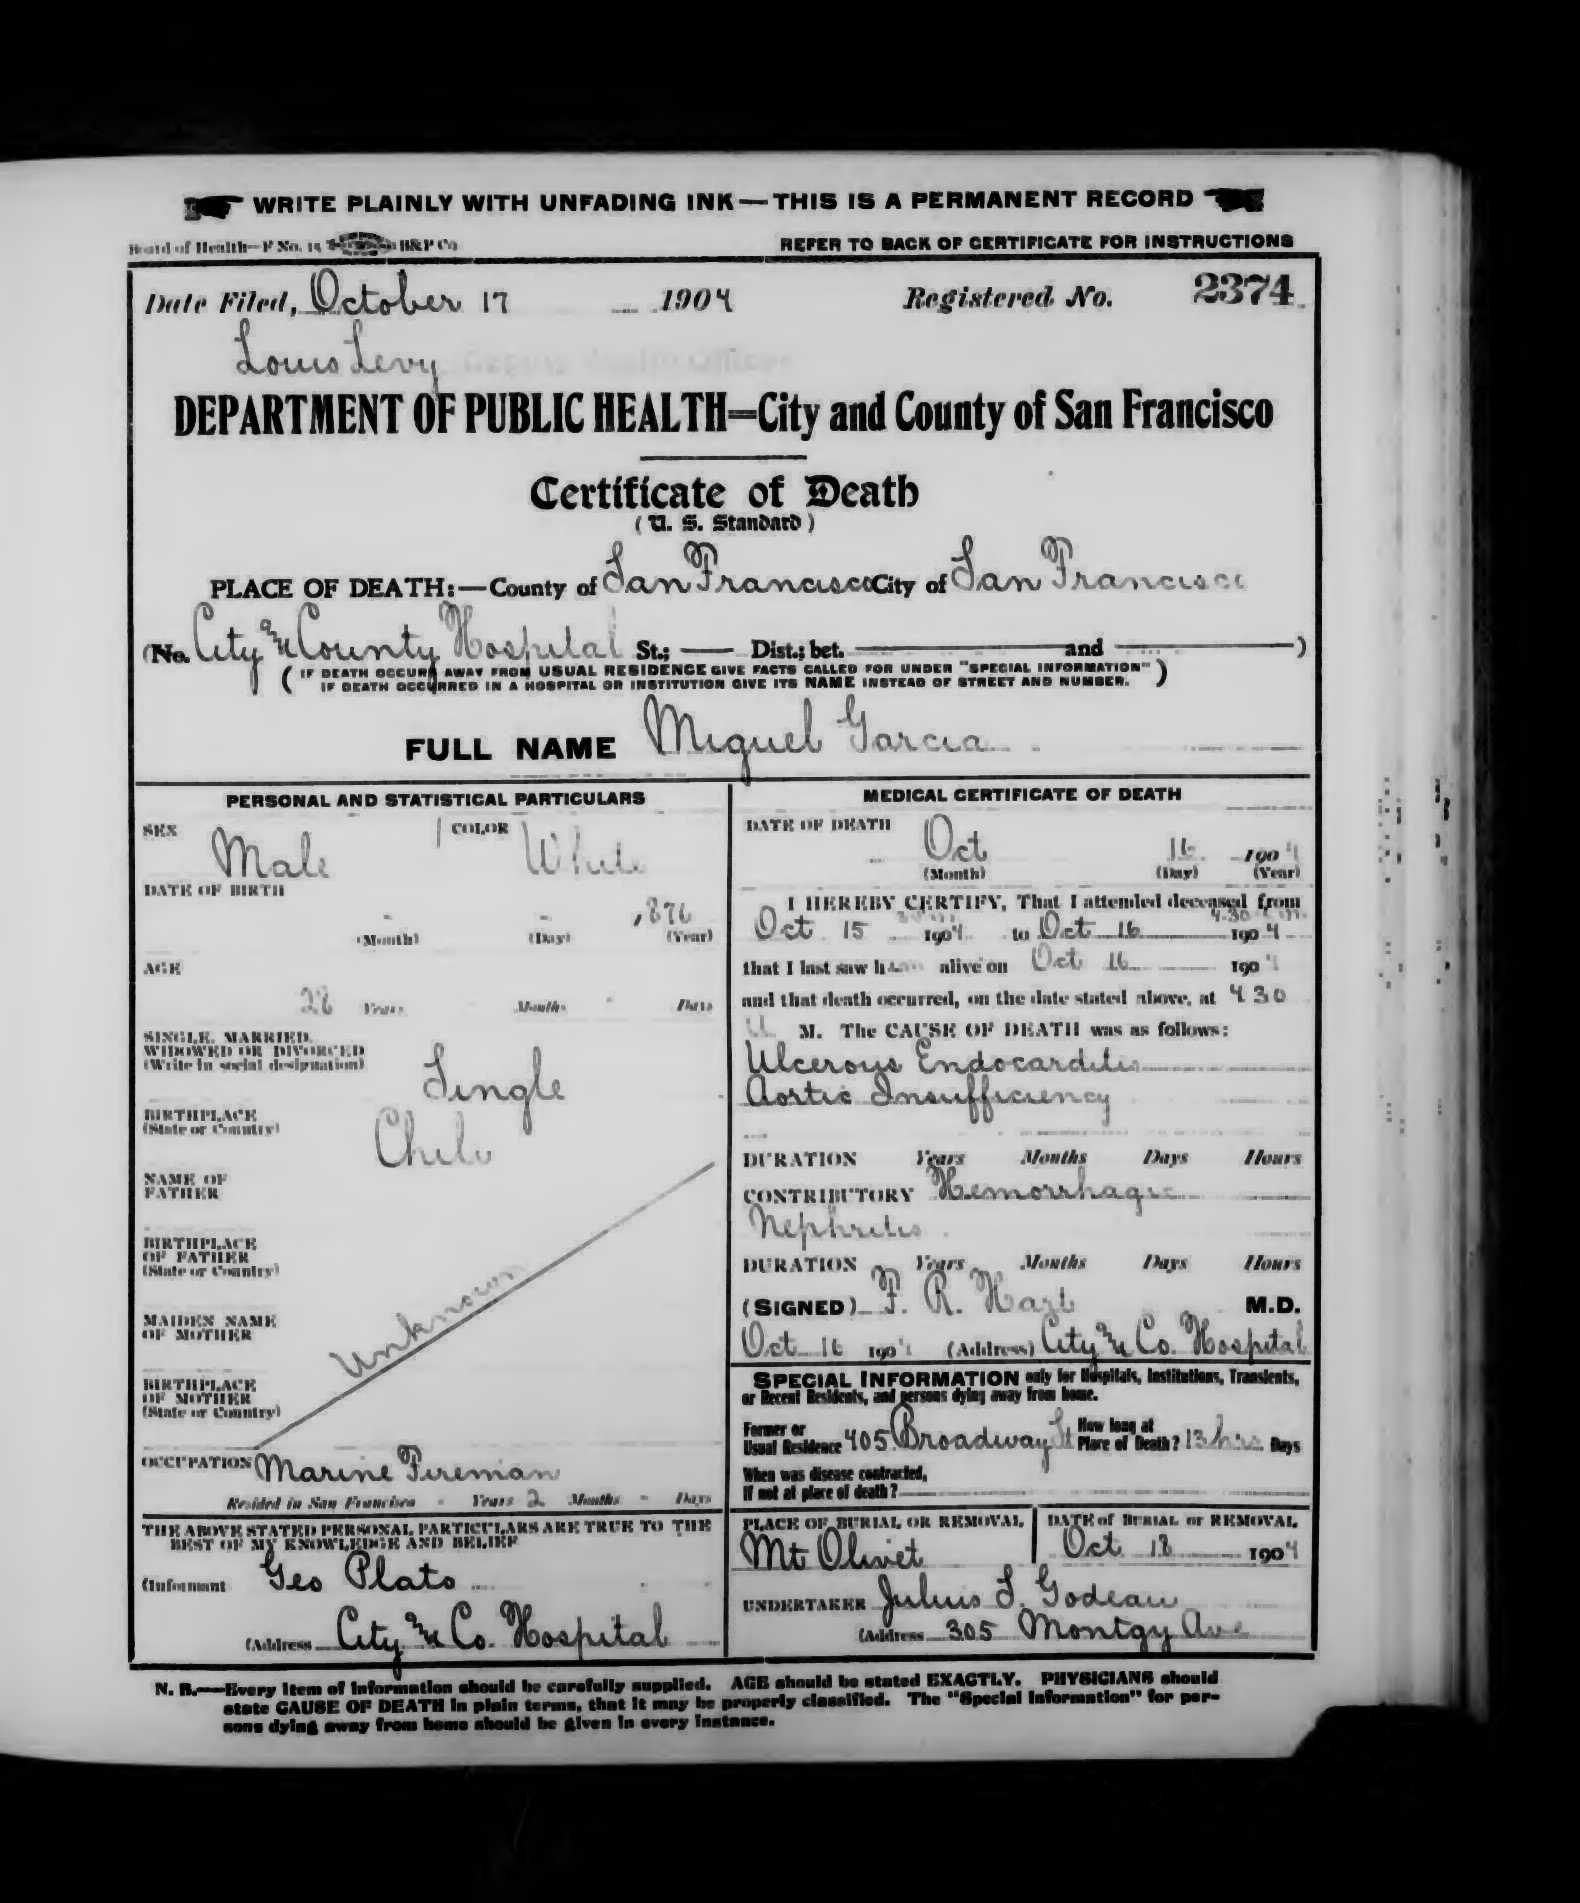 WRITE PLAINLY WITH UNFADING INK—THIS IS A PERMANENT RECORD
Board of Health—F No. 15 B&P Co
REFER TO BACK OF CERTIFICATE FOR INSTRUCTIONS
Date Filed, October 17 1904 Registered No. 2374
Louis Levy
DEPARTMENT OF PUBLIC HEALTH=City and County of San Francisco
Certificate of Death
(U. S. Standard)
PLACE OF DEATH:—County of San Francisco City of San Francisco
(No. City and County Hospital St.; — Dist.; bet. — and — )
(IF DEATH OCCURS AWAY FROM USUAL RESIDENCE GIVE FACTS CALLED FOR UNDER "SPECIAL INFORMATION"
IF DEATH OCCURRED IN A HOSPITAL OR INSTITUTION GIVE ITS NAME INSTEAD OF STREET AND NUMBER.)
FULL NAME Miguel Garcia
PERSONAL AND STATISTICAL PARTICULARS
SEX Male COLOR White
DATE OF BIRTH
1876
(Month) (Day) (Year)
AGE
28 Years Months Days
SINGLE, MARRIED,
WIDOWED OR DIVORCED
(Write in social designation)
Single
BIRTHPLACE
(State or Country)
Chile
NAME OF
FATHER
BIRTHPLACE
OF FATHER
(State or Country)
MAIDEN NAME
OF MOTHER
Unknown
BIRTHPLACE
OF MOTHER
(State or Country)
OCCUPATION Marine Fireman
Resided in San Francisco - Years 2 Months - Days
THE ABOVE STATED PERSONAL PARTICULARS ARE TRUE TO THE
BEST OF MY KNOWLEDGE AND BELIEF
(Informant Geo Plato
(Address City and Co. Hospital
MEDICAL CERTIFICATE OF DEATH
DATE OF DEATH
Oct 16 1904
(Month) (Day) (Year)
I HEREBY CERTIFY, That I attended deceased from
4.30
Oct 15 1904 to Oct 16 1904
that I last saw him alive on Oct 16 1904
and that death occurred, on the date stated above, at 4 30
a M. The CAUSE OF DEATH was as follows:
Ulcerous Endocarditis
Aortic Insufficiency
DURATION Years Months Days Hours
CONTRIBUTORY Hemorrhagic
Nephritis
DURATION Years Months Days Hours
(SIGNED) F. R. M.D.
Oct 16 1904 (Address) City and Co. Hospital
SPECIAL INFORMATION only for Hospitals, Institutions, Transients,
or Recent Residents, and persons dying away from home.
Former or
Usual Residence 405 Broadway St
How long at
Place of Death? 13 hrs Days
When was disease contracted,
If not at place of death?
PLACE OF BURIAL OR REMOVAL
Mt Olivet
DATE of BURIAL or REMOVAL
Oct 18 1904
UNDERTAKER Julius S. Godeau
(Address 305 Montgy Ave
N. B.—Every item of information should be carefully supplied. AGE should be stated EXACTLY. PHYSICIANS should
state CAUSE OF DEATH in plain terms, that it may be properly classified. The "Special Information" for per-
sons dying away from home should be given in every instance.